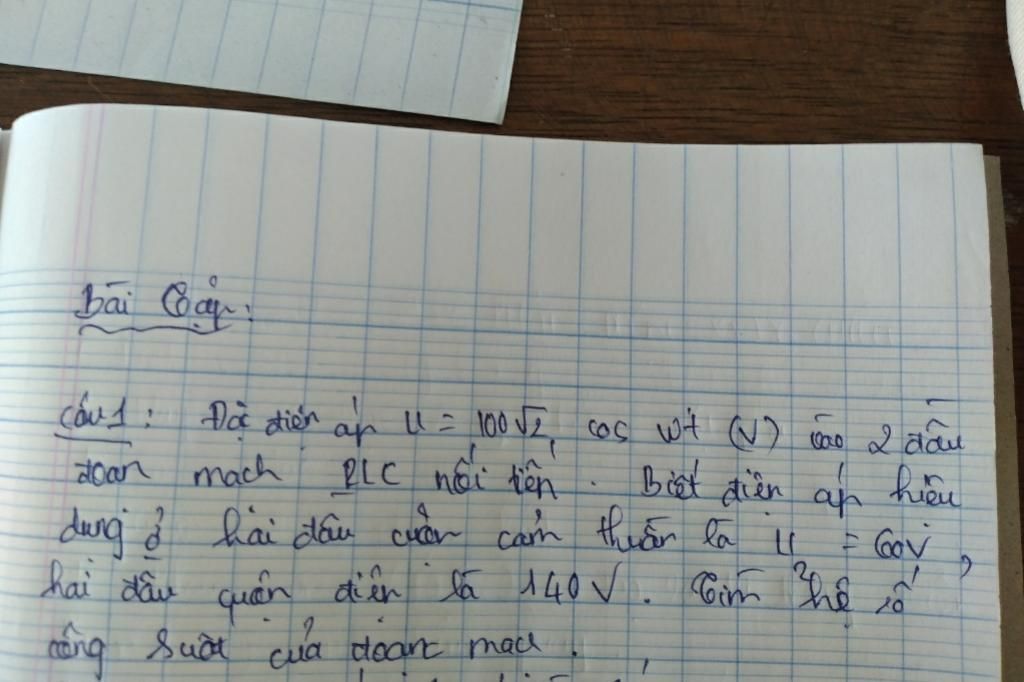 Bài Tập:
Câu 1: Đặt điện áp u = 100√2 cos wt (V) vào 2 đầu
đoạn mạch RLC nối tiếp. Biết điện áp hiệu
dụng ở hai đầu cuộn cảm thuần là U = 60V,
hai đầu quận điện là 140V. Tìm hệ số
công suất của đoạn mạch.